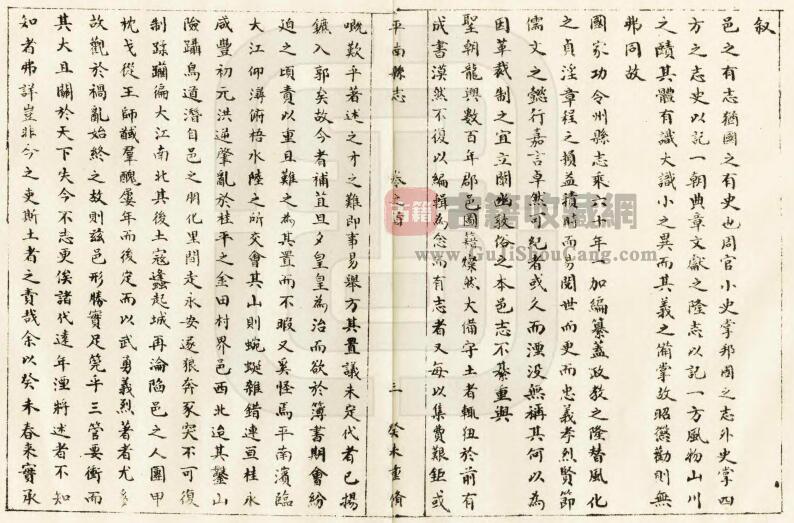 叙
邑之有志猶國之有史也周官小史掌邦國之志外史掌四
方之志史以記一朝典章文獻之隆志以記一方風物山川
之賾其體有識大識小之異而其義之備掌故昭懲勸則無
弗同故
國家功令州縣志乘六十年一加編纂蓋政教之隆替風化
之貞淫章程之損益積時而易閱世而更而忠義孝烈賢節
儒文之懿行嘉言卓然可紀者或久而湮沒無稱其何以為
因革裁制之宜立闡幽敦俗之本邑志不綦重與
聖朝龍興數百年郡邑圖籍燦然大備守土者輒狃於前有
成書漠然不復以編輯為念而有志者又每以集費艱鉅或
平南縣志
卷之首
三
癸未重脩
嘅歎乎著述之才之難即事易舉方其置議未定代者已揚
鑣入郭矣故今者補苴旦夕皇皇為治而欲於簿書期會紛
迫之頃責以重且難之為其置而不暇又奚怪焉平南濱臨
大江仰潯俯梧水陸之所交會其山則蜿蜒雜錯連亘桂永
咸豐初元洪逆肇亂於桂平之金田村界邑西北迨其鑿山
險躡鳥道潛自邑之朋化里間走永安逐狼奔豕突不可復
制蹂躪徧大江南北其後土寇蠭起城再淪陷邑之人團甲
枕戈從王師馘羣醜婁年而後定而以武勇義烈著者尤多
故觀於禍亂始終之故則茲邑形勝實足筦乎三管要衝而
其大且關於天下失今不志更俟諸代遠年湮將述者不知
知者弗詳豈非今之吏斯土者之責哉余以癸未春來實承
古籍
古籍收藏網
www.GuJiShouCang.com